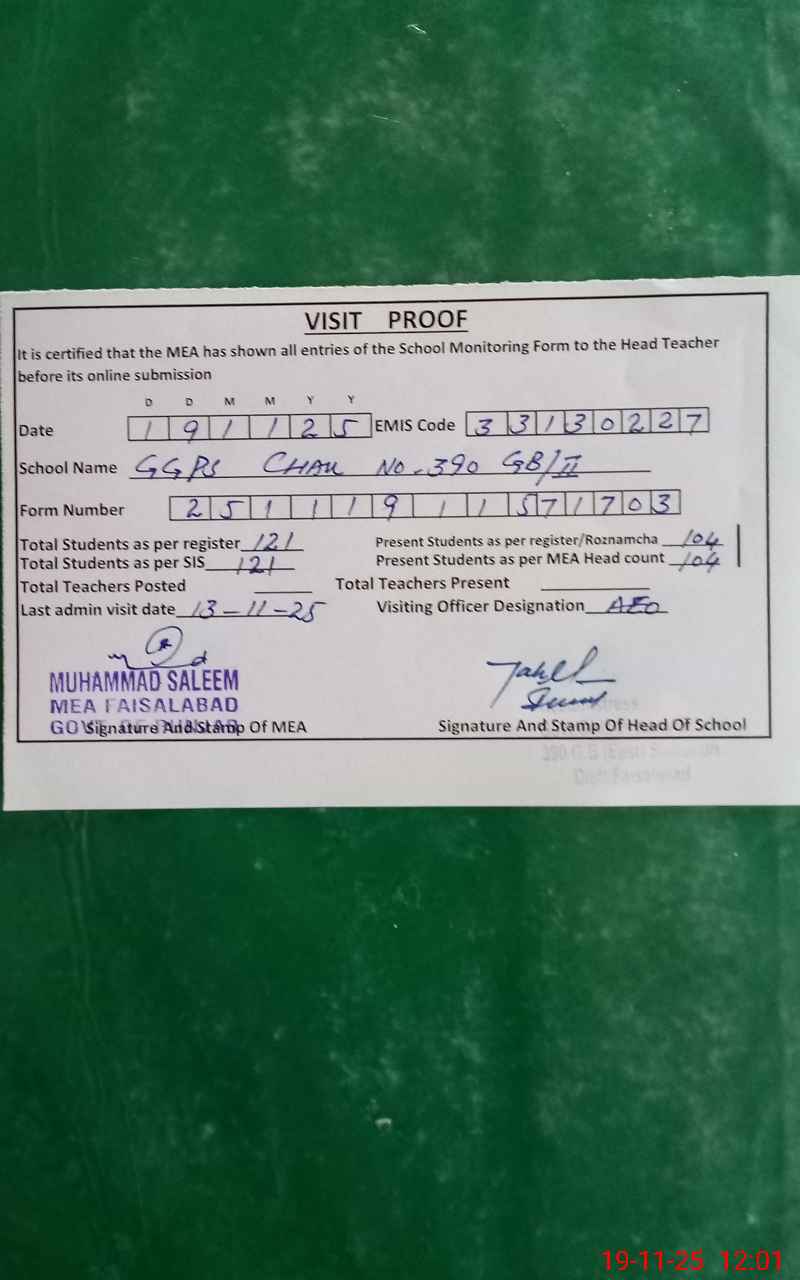 VISIT PROOF
It is certified that the MEA has shown all entries of the School Monitoring Form to the Head Teacher
before its online submission
D D M M Y Y
Date 1 9 1 1 2 5 EMIS Code 3 3 1 3 0 2 2 7
School Name GGPS CHAK NO. 390 GB/II
Form Number 2 5 1 1 1 9 1 1 5 7 1 7 0 3
Total Students as per register 121 Present Students as per register/Roznamcha 104
Total Students as per SIS 121 Present Students as per MEA Head count 104
Total Teachers Posted Total Teachers Present
Last admin visit date 13-11-25 Visiting Officer Designation AEO
MUHAMMAD SALEEM
MEA FAISALABAD
GOVT. OF PUNJAB
Signature And Stamp Of MEA Signature And Stamp Of Head Of School
390 G.B (East)
19-11-25 12:01